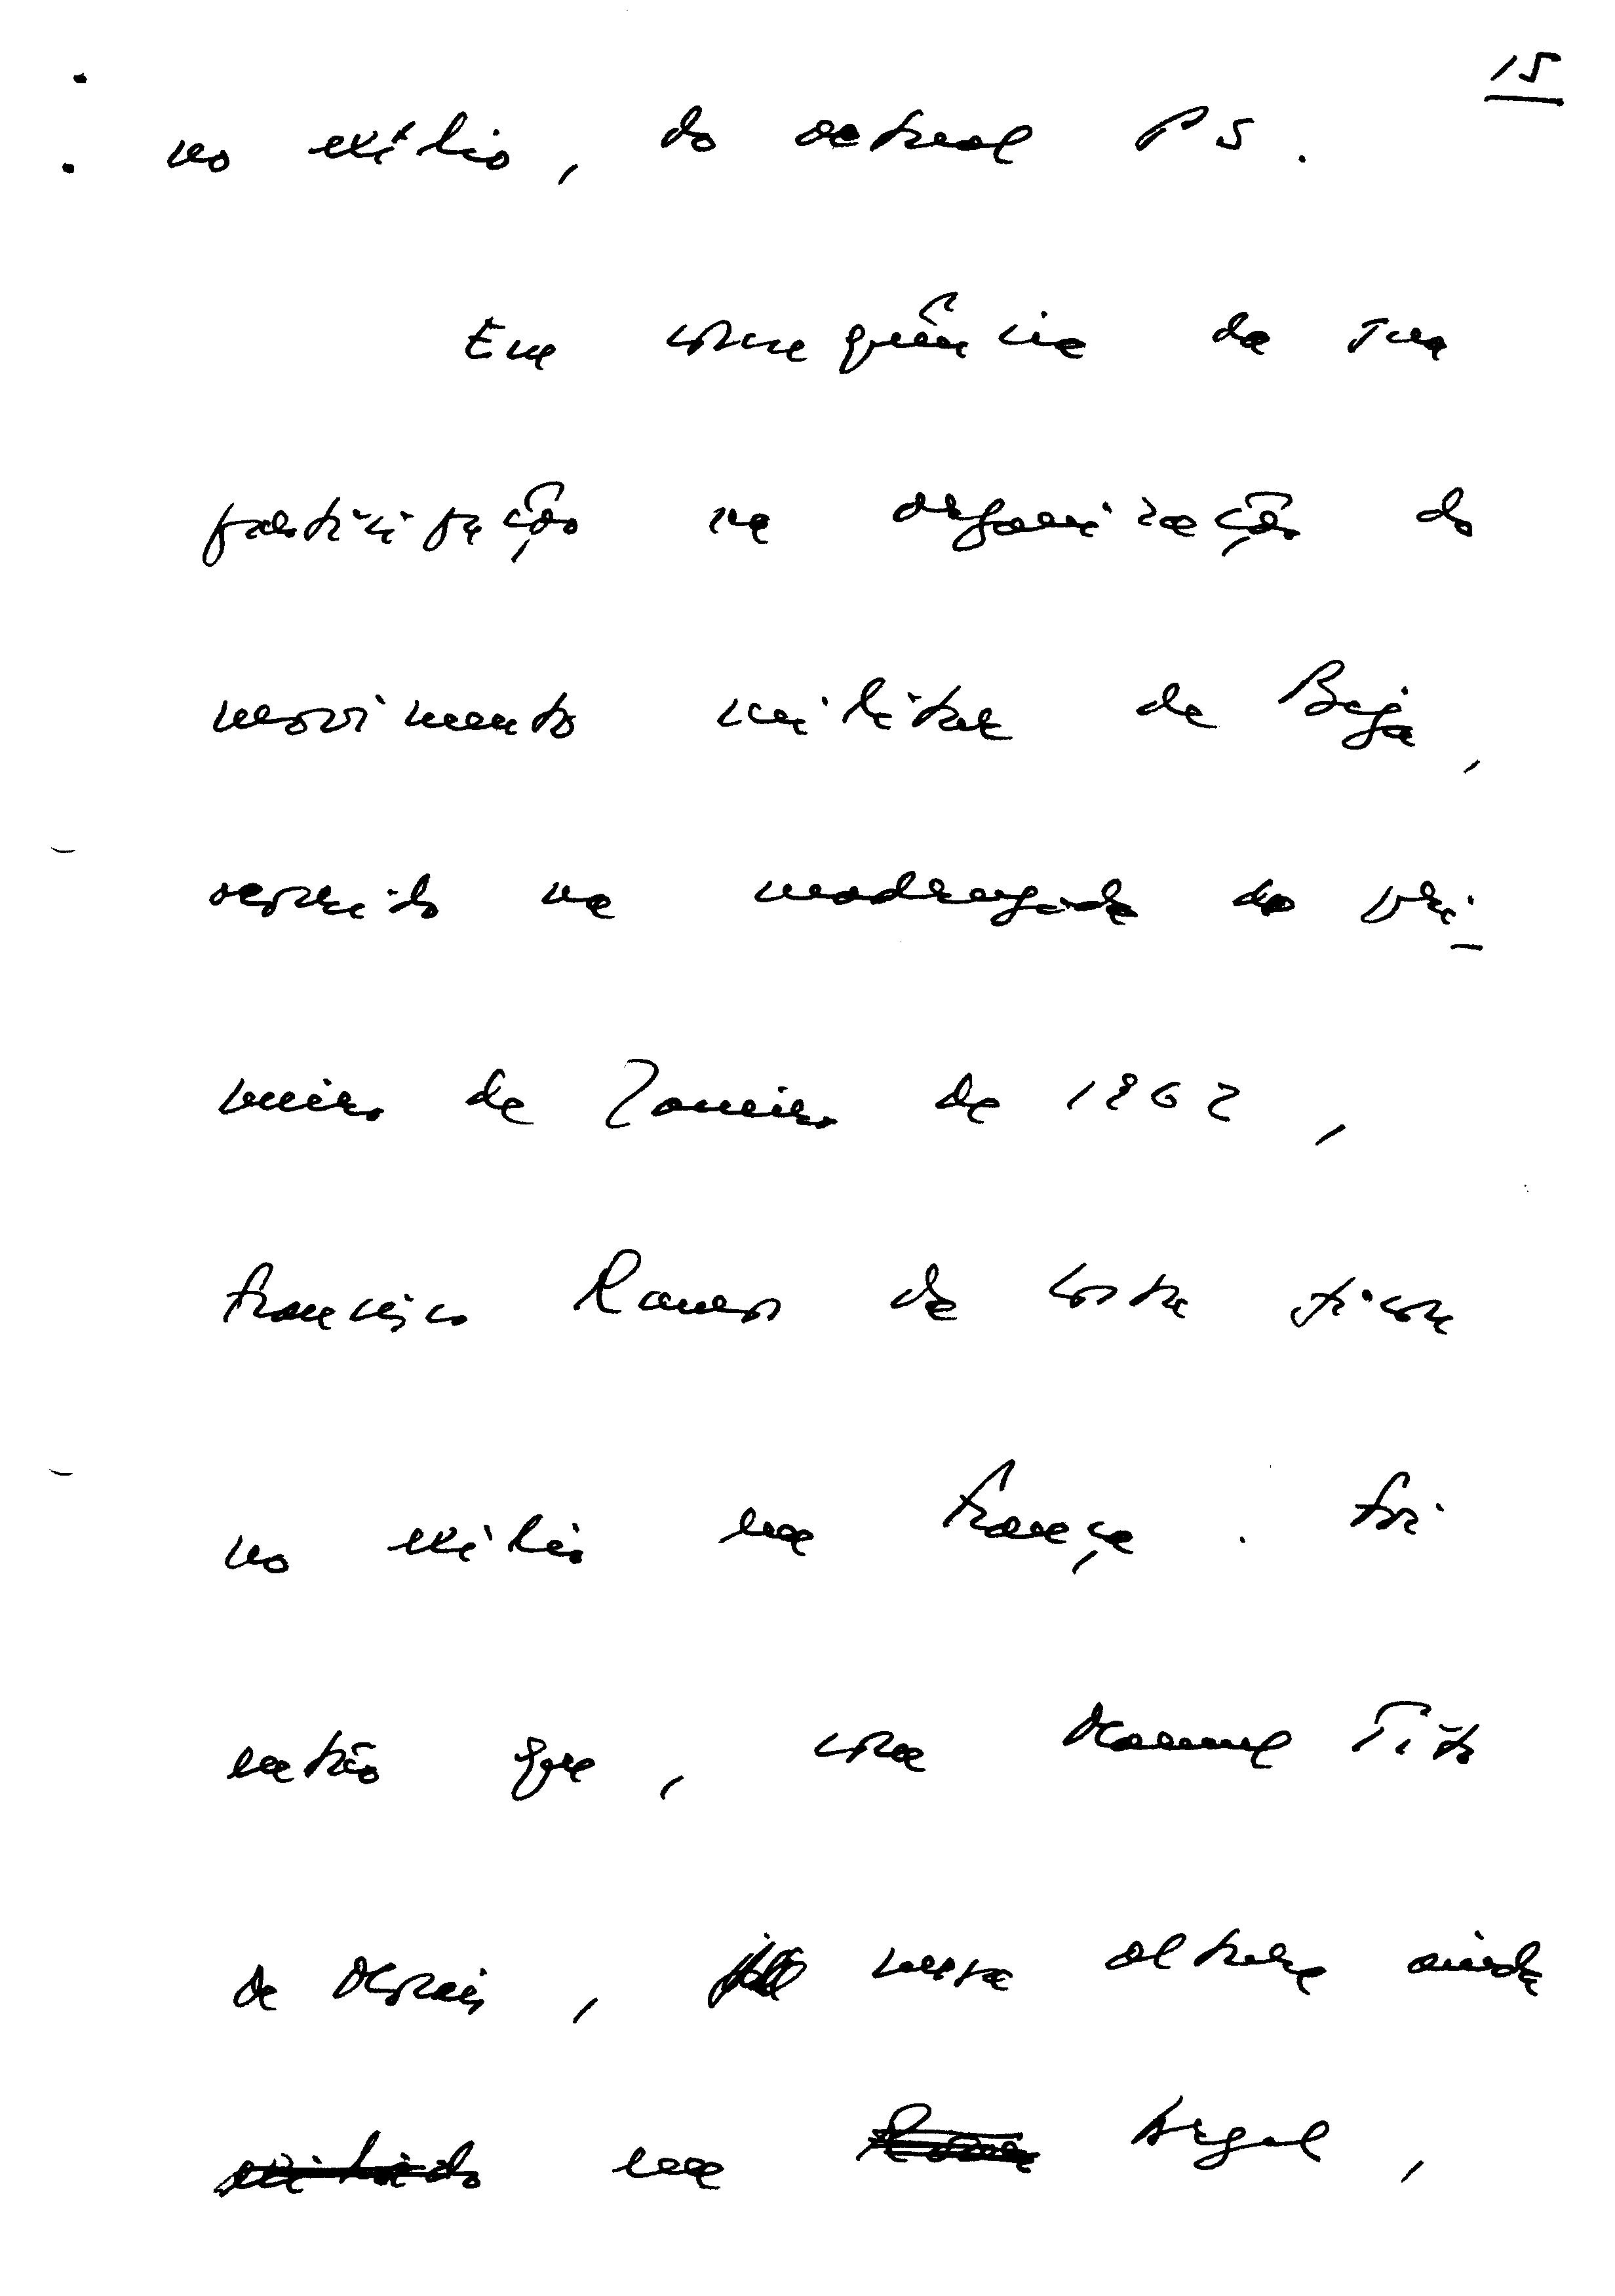 15
no exílio, do actual PS.
Em consequência da sua
participação na organização do
movimento militar de Beja,
ocorrido na madrugada do pri-
meiro de Janeiro de 1962,
Francisco Ramos da Costa fica
no exílio em França. Foi
então que, com Manuel Tito
de Morais, nessa altura ainda
exilado em Roma Argel,